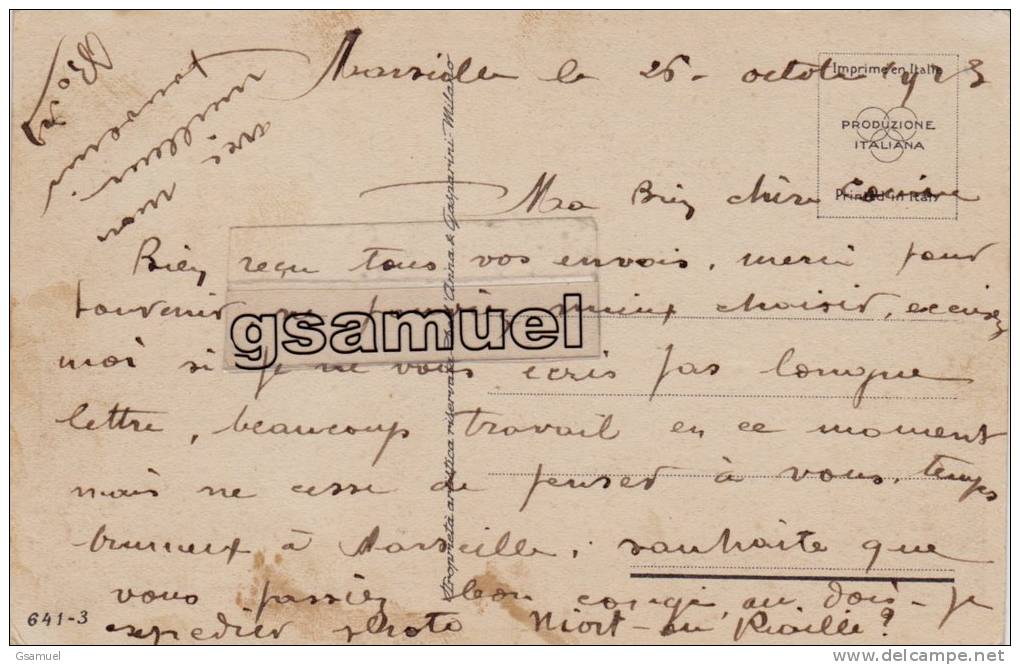 Marseille le 26 - octobre 1923
Imprimé en Italie
PRODUZIONE
ITALIANA
Printed in Italy
Ma Bien chère
Bien reçu tous vos envois, merci pour
souvenir mieux choisir, excusez
moi si je ne vous écris pas longue
lettre, beaucoup travail en ce moment
mais ne cesse de penser à vous, temps
brumeux à Marseille, souhaite que
vous passiez bon congé, où dois-je
expedier photo Niort - ou ?
avec
meilleurs
Proprietà artistica riservata Anna & Gasparini - Milano
641-3
gsamuel
Gsamuel
delcampe.net